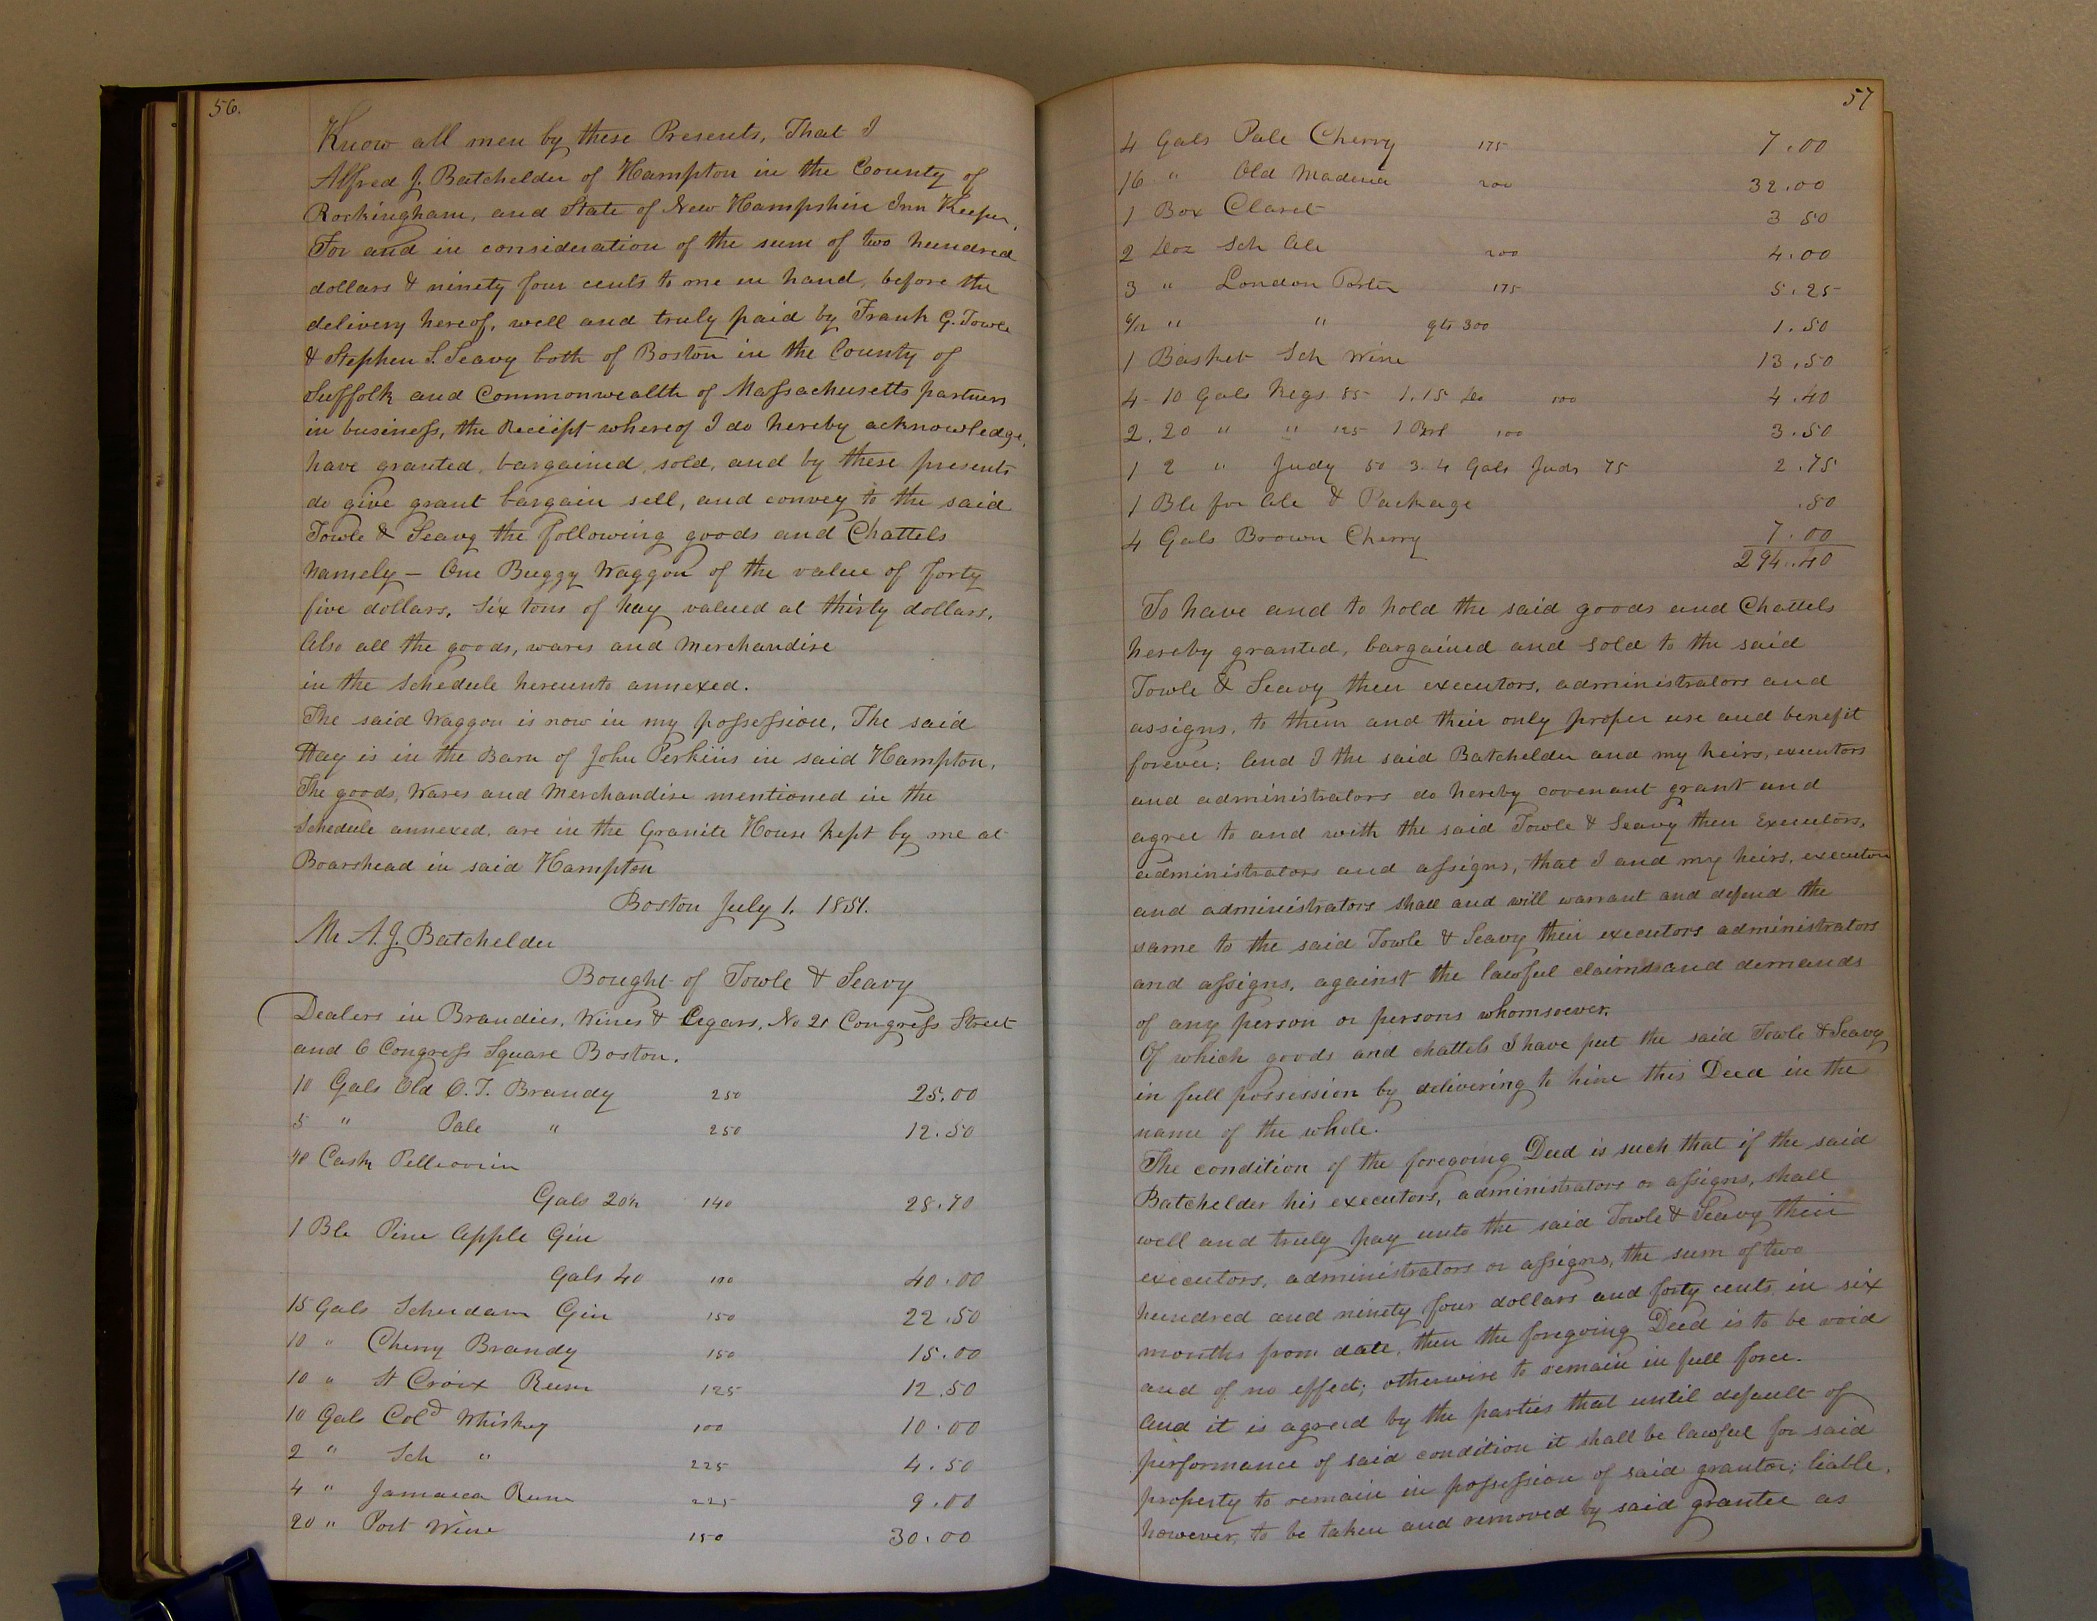 56.
Know all men by these Presents, That I
Alfred J. Batchelder of Hampton in the County of
Rockingham, and State of New Hampshire Inn Keeper,
For and in consideration of the sum of two hundred
dollars & ninety four cents to me in hand, before the
delivery hereof, well and truly paid by Frank G. Towle
& Stephen S. Seavy both of Boston in the County of
Suffolk and Commonwealth of Massachusetts partners
in business, the Receiipt whereof I do hereby acknowledge,
have granted, bargained, sold, and by these presents
do give grant bargain sell, and convey to the said
Towle & Seavy the following goods and Chattels
Namely — One Buggy Waggon of the value of forty
five dollars, Six tons of hay valued at thirty dollars,
Also all the goods, wares and Merchandise
in the Schedule hereunto annexed.
The said Waggon is now in my possession, The said
Hay is in the Barn of John Perkins in said Hampton,
The goods, Wares and Merchandise mentioned in the
Schedule annexed, are in the Granite House kept by me at
Boarshead in said Hampton
Boston July 1. 1851.
Mr A. J. Batchelder
Bought of Towle & Seavy
Dealers in Brandies, Wines & Cegars, No 21 Congress Street
and 6 Congress Square Boston.
10 Gals Old O. T. Brandy 250 25.00
5 " Pale " 250 12.50
Cask Pellvoisin
Gals 20½ 140 28.70
1 Ble Pine Apple Gin
Gals 40 100 40.00
15 Gals Scheidam Gin 150 22.50
10 " Cherry Brandy 150 15.00
10 " St Croix Rum 125 12.50
10 Gals Cold Whiskey 100 10.00
2 " Sch " 225 4.50
4 " Jamaica Rum 225 9.00
20 " Port Wine 150 30.00
57
4 Gals Pale Cherry 175 7.00
16 " Old Maderia 200 32.00
1 Box Claret 3 50
2 Doz Sch Ale 200 4.00
3 " London Porter 175 5.25
6/12 " " qts 300 1.50
1 Basket Sch Wine 13.50
4 - 10 Gals Kegs 85 1.15 Do 100 4.40
2. 20 " " 125 1 Brl 100 3.50
1 2 " Judy 50 3. 4 Gals Juds 75 2.75
1 Ble for Ale & Package .50
4 Gals Brown Cherry 7.00
294.40
To have and to hold the said goods and Chattels
hereby granted, bargained and sold to the said
Towle & Seavy their executors, administrators and
assigns, to them and their only proper use and benefit
forever; And I the said Batchelder and my heirs, executors
and administrators do hereby covenant grant and
agree to and with the said Towle & Seavy their Executors,
administrators and assigns, that I and my heirs, executors
and administrators shall and will warrant and defend the
same to the said Towle & Seavy their executors administrators
and assigns, against the lawful claims and demands
of any person or persons whomsoever.
Of which goods and chattels I have put the said Towle & Seavy
in full possession by delivering to him this Deed in the
name of the whole.
The condition of the foregoing Deed is such that if the said
Batchelder his executors, administrators or assigns, shall
well and truly pay unto the said Towle & Seavy their
executors, administrators or assigns, the sum of two
hundred and ninety four dollars and forty cents in six
months from date, then the foregoing Deed is to be void
and of no effect; otherwise to remain in full force.
And it is agreed by the parties that until default of
performance of said condition it shall be lawful for said
property to remain in possession of said grantor; liable,
however, to be taken and removed by said grantee as